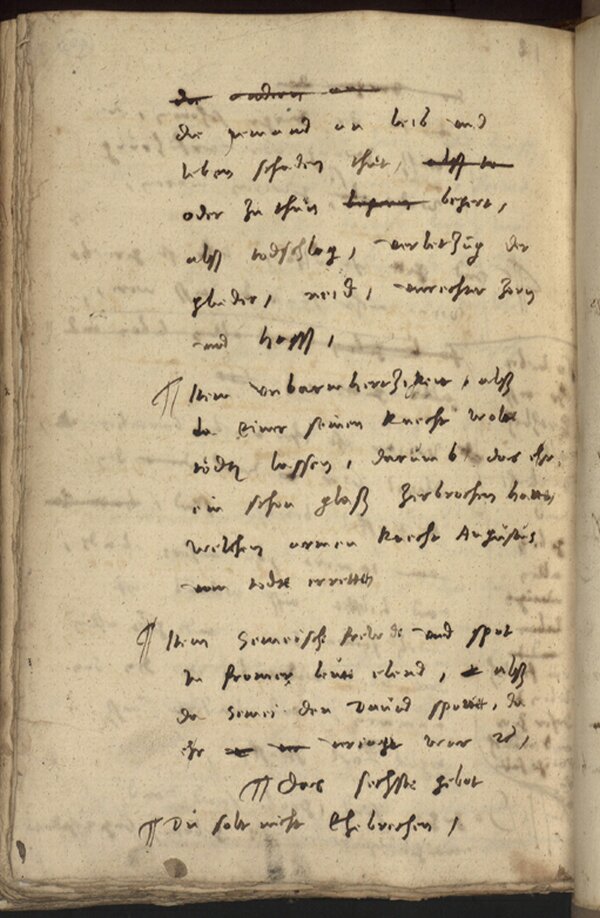 die jemand an leib und
leben schaden thůt,
oder zu thůn begert,
alß todschlag, verletzūg der
glieder, neid, unrechter zorn
und hass,
¶ Item Unbarmhertzikeit, alß
da einer seinen Knecht wolt
lassen, darumb das ehr
ein schon glaß zerbrochen hatte,
welchen armen Knecht Augustus
vom todt errettet
¶ Item Semeische freude und spot
in fromer leut elend, alß
da Semei den David spottet, da
ehr veriagt war ꝛc,
¶ Das sechste gebot
¶ Du solt nicht Ehebrechen,